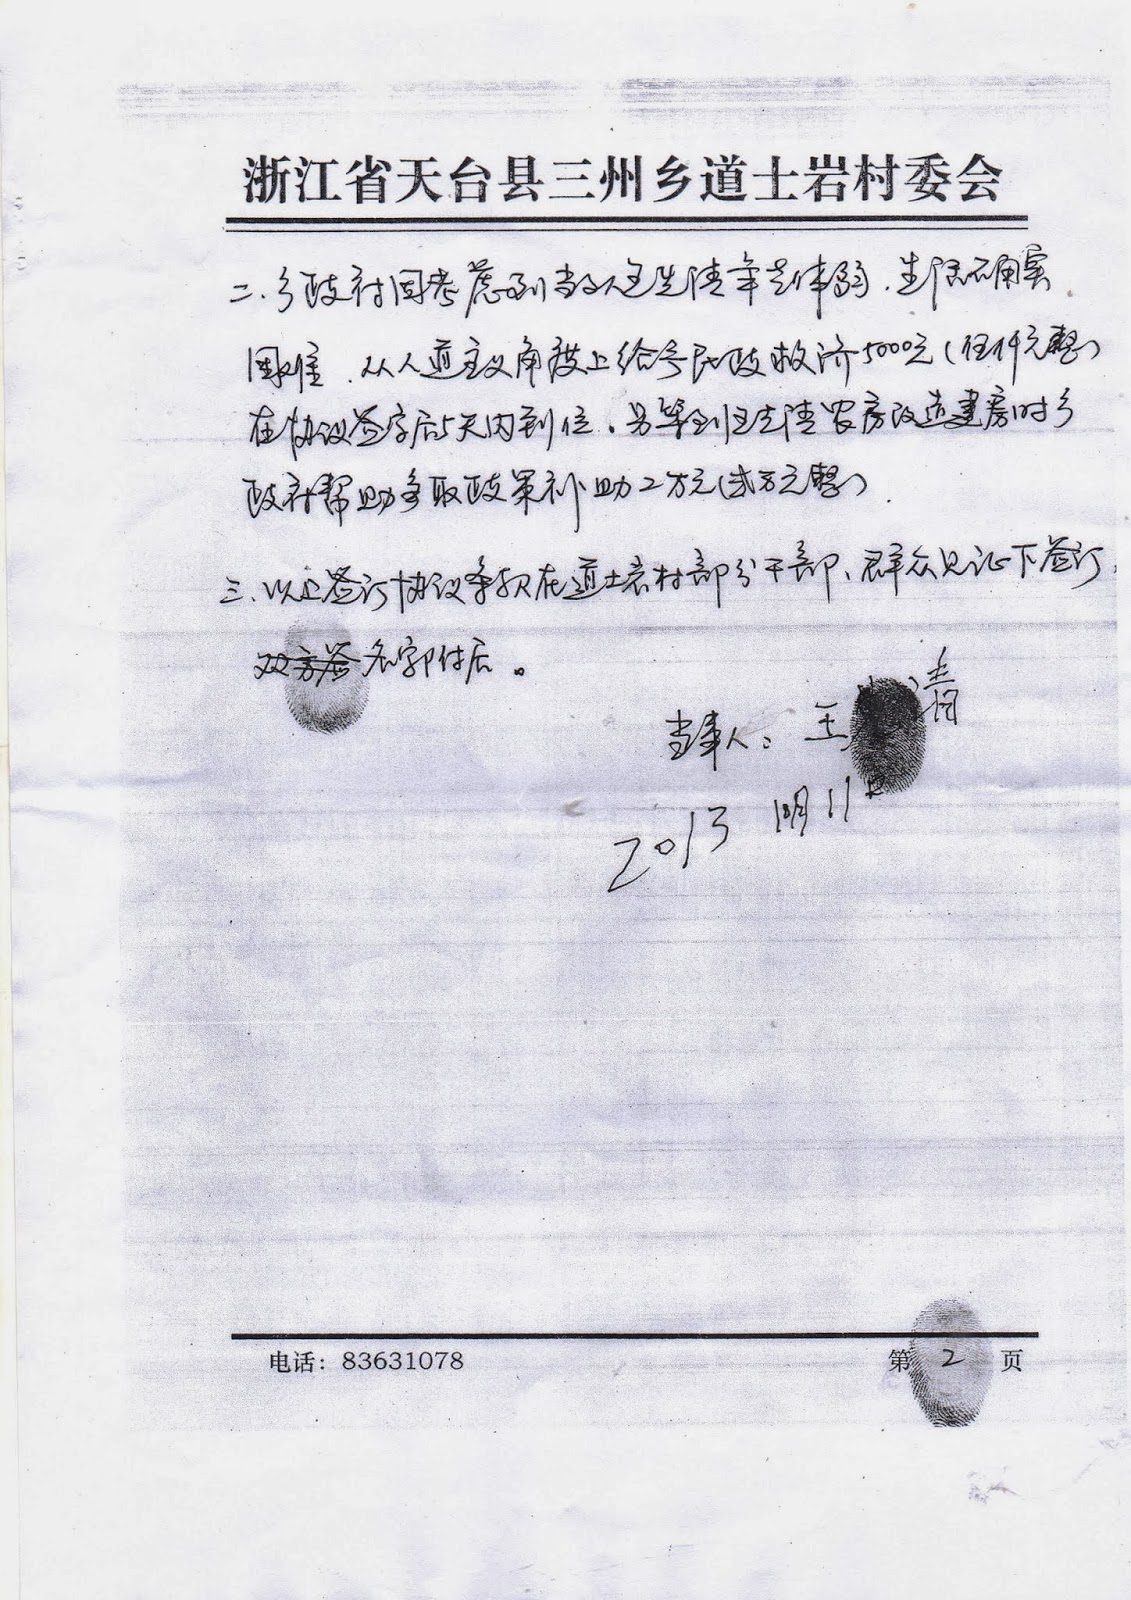 浙江省天台县三州乡道士岩村委会
二、乡政府因考虑到当事人王先清年老体弱、生活确实
困难、从人道主义角度上给予民政救济5000元(伍仟元整)
在协议签字后5天内到位。另等到王先清农房改造建房时乡
政府帮助争取政策补助2万元(贰万元整)、
三、以上签订协议条款在道士岩村部分干部、群众见证下签订、
双方签名字附后。
当事人: 王 清
2013 10月11日
电话: 83631078
第 2 页